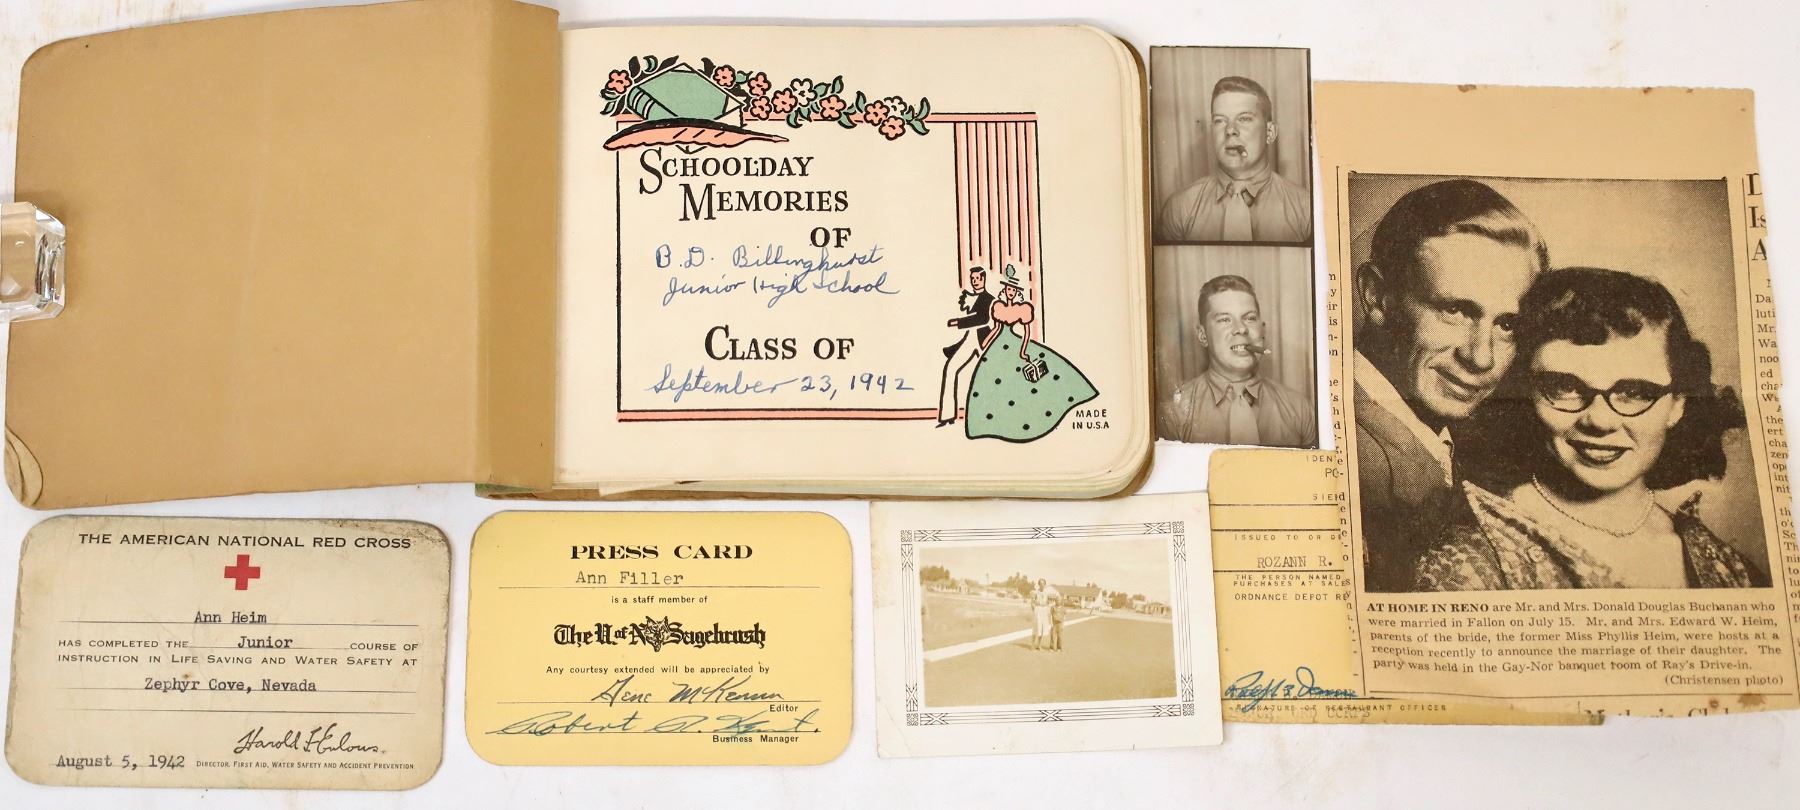 SCHOOLDAY
MEMORIES
OF
B.D. Billinghurst
Junior High School
CLASS OF
September 23, 1942
MADE
IN U.S.A
THE AMERICAN NATIONAL RED CROSS
Ann Heim
HAS COMPLETED THE Junior COURSE OF
INSTRUCTION IN LIFE SAVING AND WATER SAFETY AT
Zephyr Cove, Nevada
Harold F Enlows.
August 5, 1942 DIRECTOR, FIRST AID, WATER SAFETY AND ACCIDENT PREVENTION
PRESS CARD
Ann Filler
is a staff member of
The U. of N. Sagebrush
Any courtesy extended will be appreciated by
Gene McKenna
Editor
Robert A.
Business Manager
IDEN
PO-
SIER
ISSUED TO OR
ROZANN R.
THE PERSON NAMED
PURCHASES AT SALE
ORDNANCE DEPOT RE
SIGNATURE OF RESTAURANT OFFICER
AT HOME IN RENO are Mr. and Mrs. Donald Douglas Buchanan who
were married in Fallon on July 15. Mr. and Mrs. Edward W. Heim,
parents of the bride, the former Miss Phyllis Heim, were hosts at a
reception recently to announce the marriage of their daughter. The
party was held in the Gay-Nor banquet room of Ray's Drive-in.
(Christensen photo)